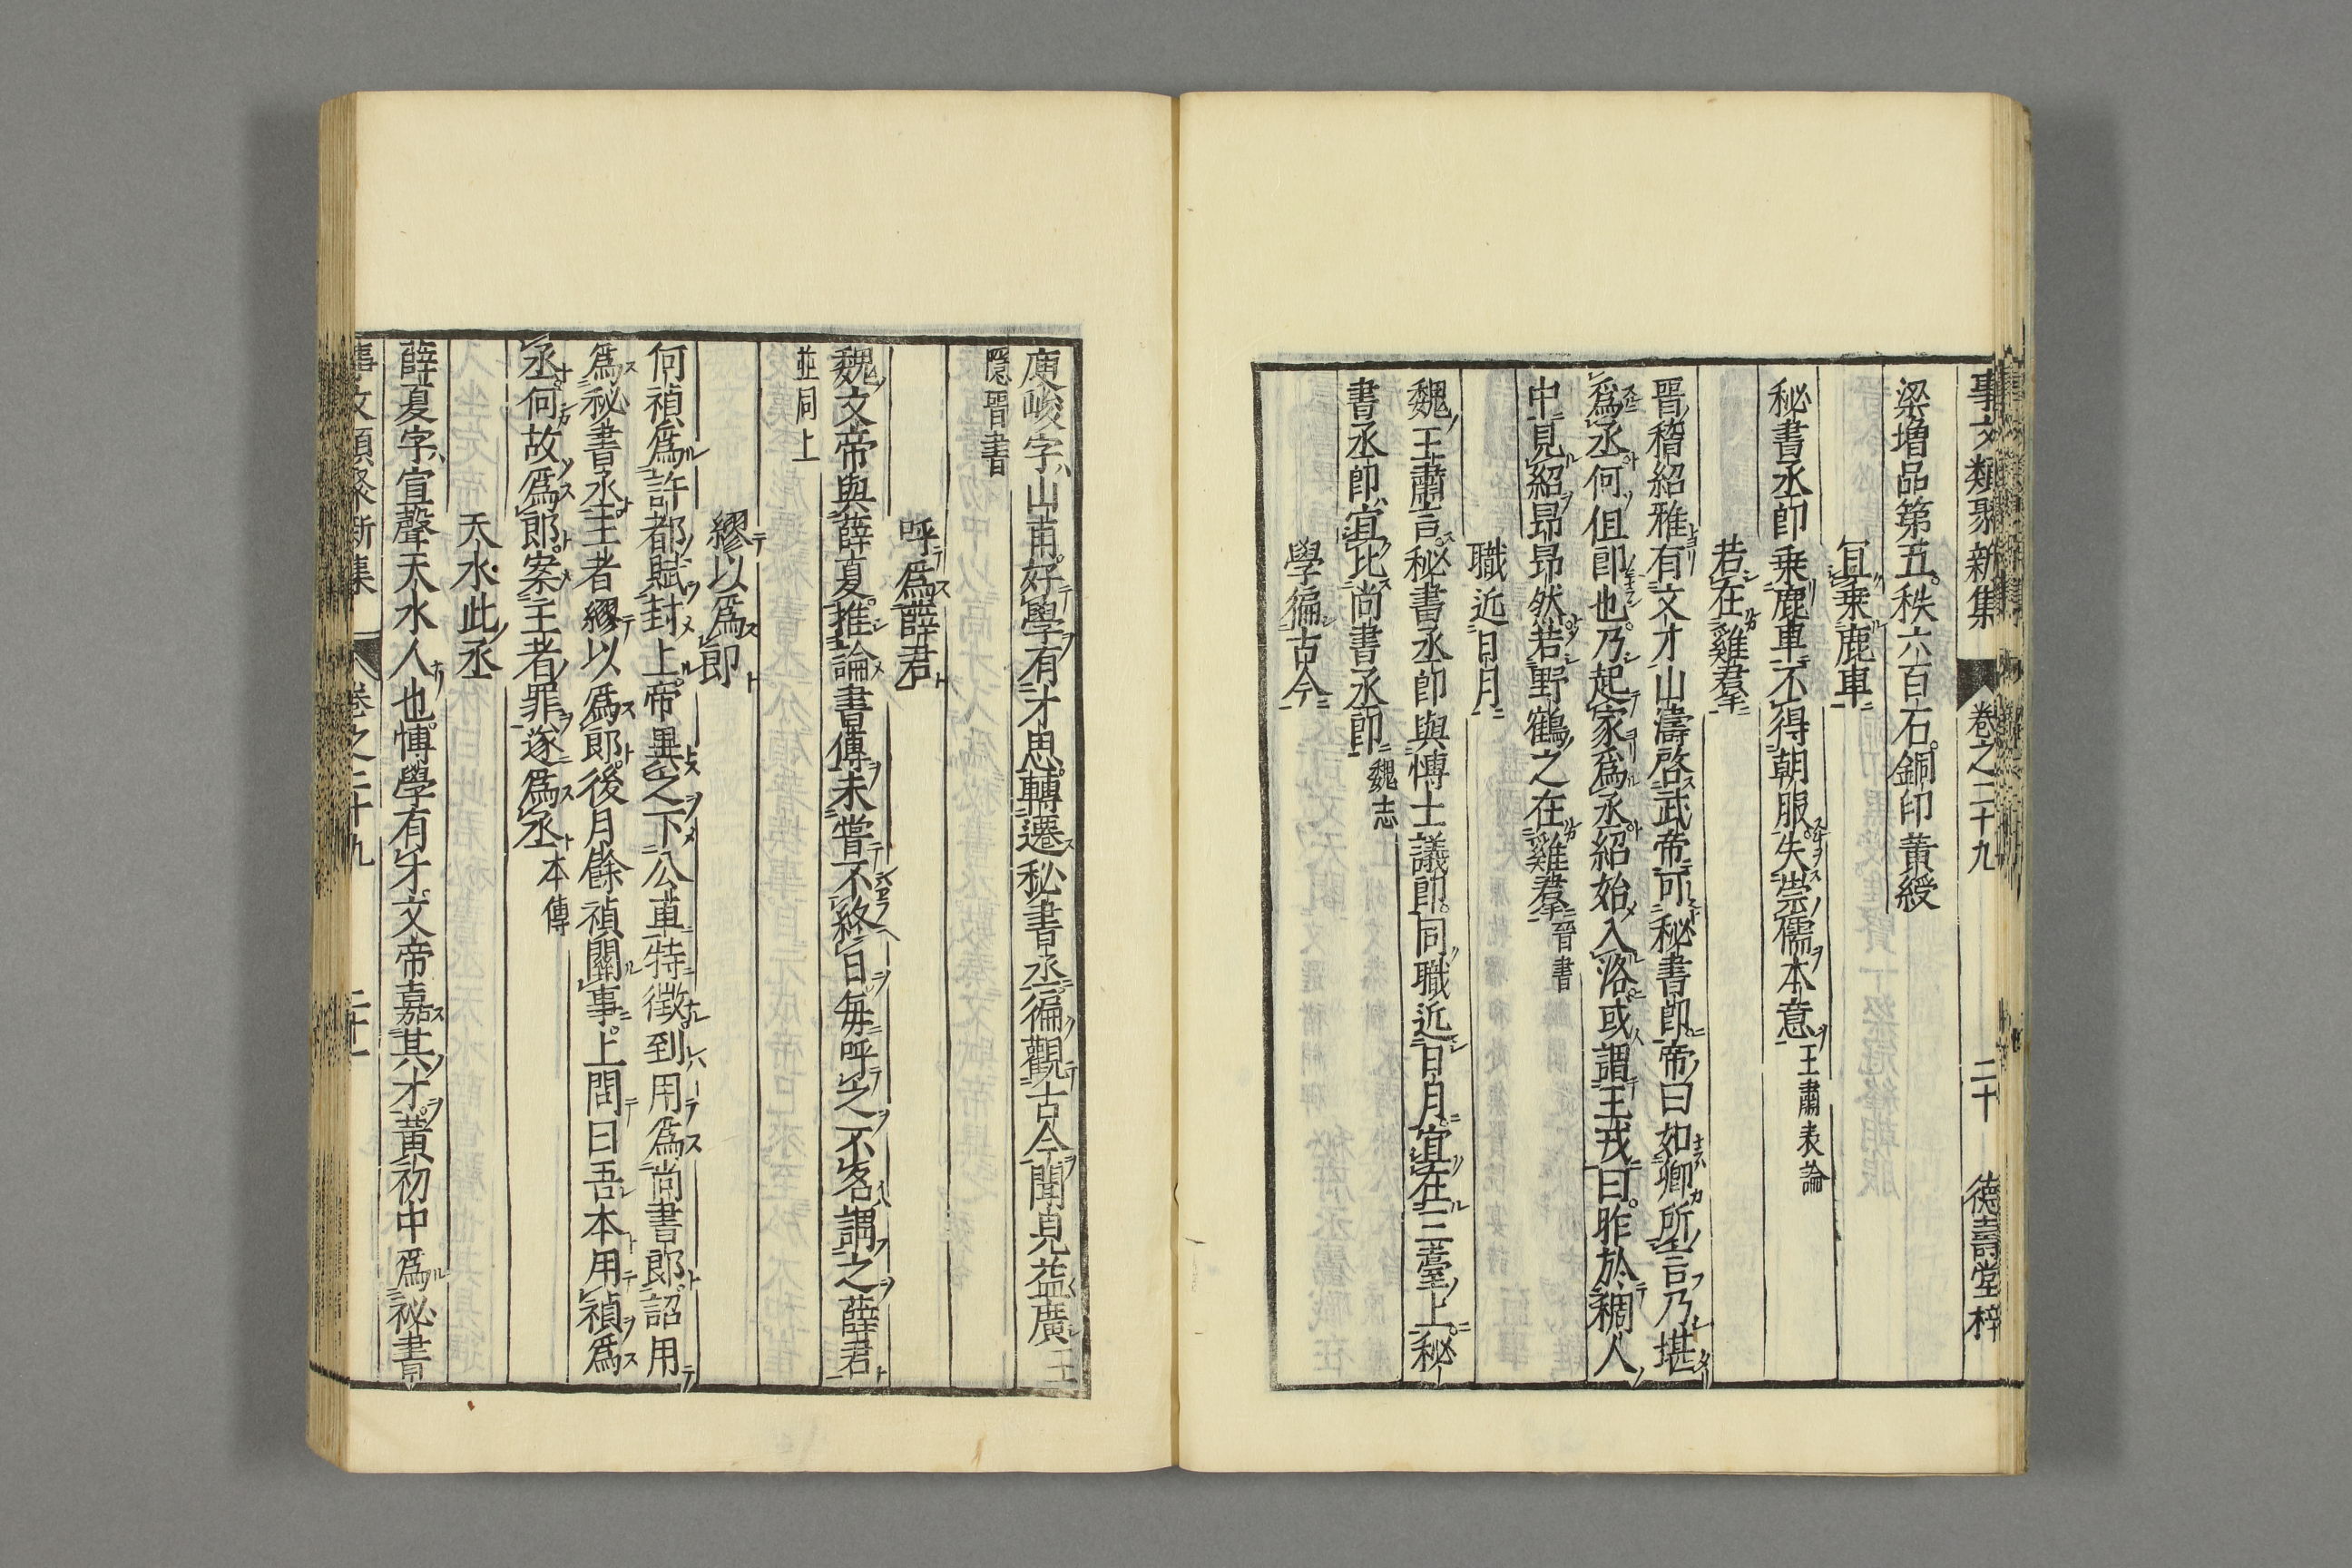 事文類聚新集 卷之二十九 二十 德壽堂梓
梁增品第五秩六百石銅印黃綬
宜乗鹿車
秘書丞郎乗鹿車不得朝服失崇儒本意王肅表論
若在雞羣
晋稽紹雅有文才山濤啓武帝可秘書郎帝曰如卿所言乃堪
爲丞何但郎也乃起家爲丞紹始入洛或謂王戎曰昨於稠人
中見紹昻昻然若野鶴之在雞羣晋書
職近日月
魏王肅言秘書丞郎與博士議郎同職近日月宜在三臺上秘
書丞郎宜比尚書丞郎魏志
學徧古今
庾峻字山甫好學有才思轉遷秘書丞徧觀古今聞見益廣王
隱晋書
呼爲薛君
魏文帝與薛夏推論書傳未嘗不終日毎呼之不名謂之薛君
並同上
繆以爲郎
何禎爲許都賦封上帝異之下公車特徵到用爲尚書郎詔用
爲秘書丞主者繆以爲郎後月餘禎關事上問曰吾本用禎爲
丞何故爲郎案主者罪遂爲丞本傳
天水此丞
薛夏字宣聲天水人也博學有才文帝嘉其才黃初中爲祕書
事文類聚新集 卷之二十九 二十一